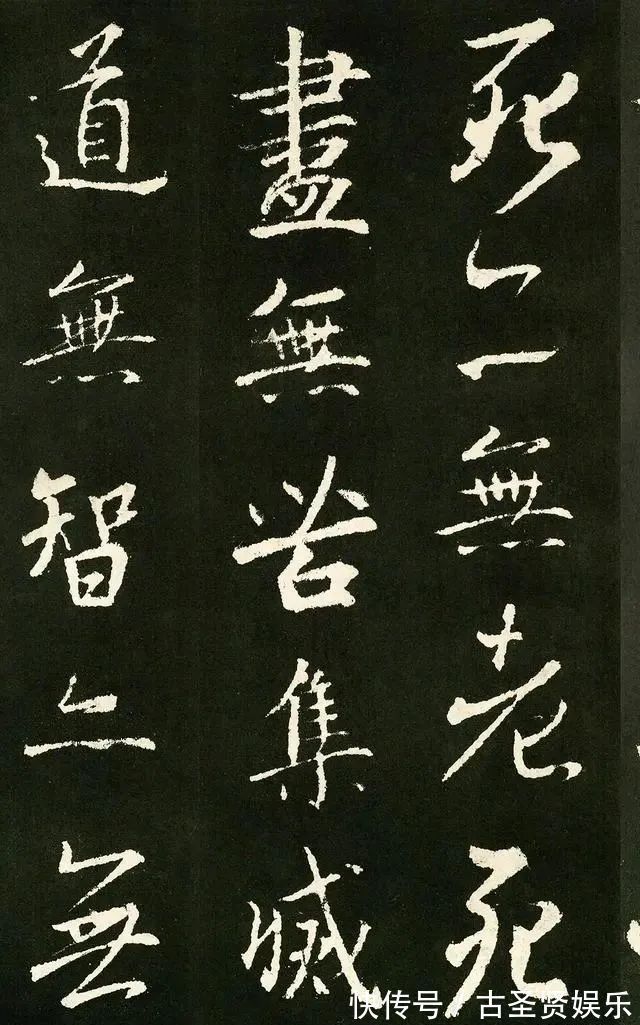 死亦無老死
盡無苦集滅
道無智亦無
快传号/古圣贤娱乐